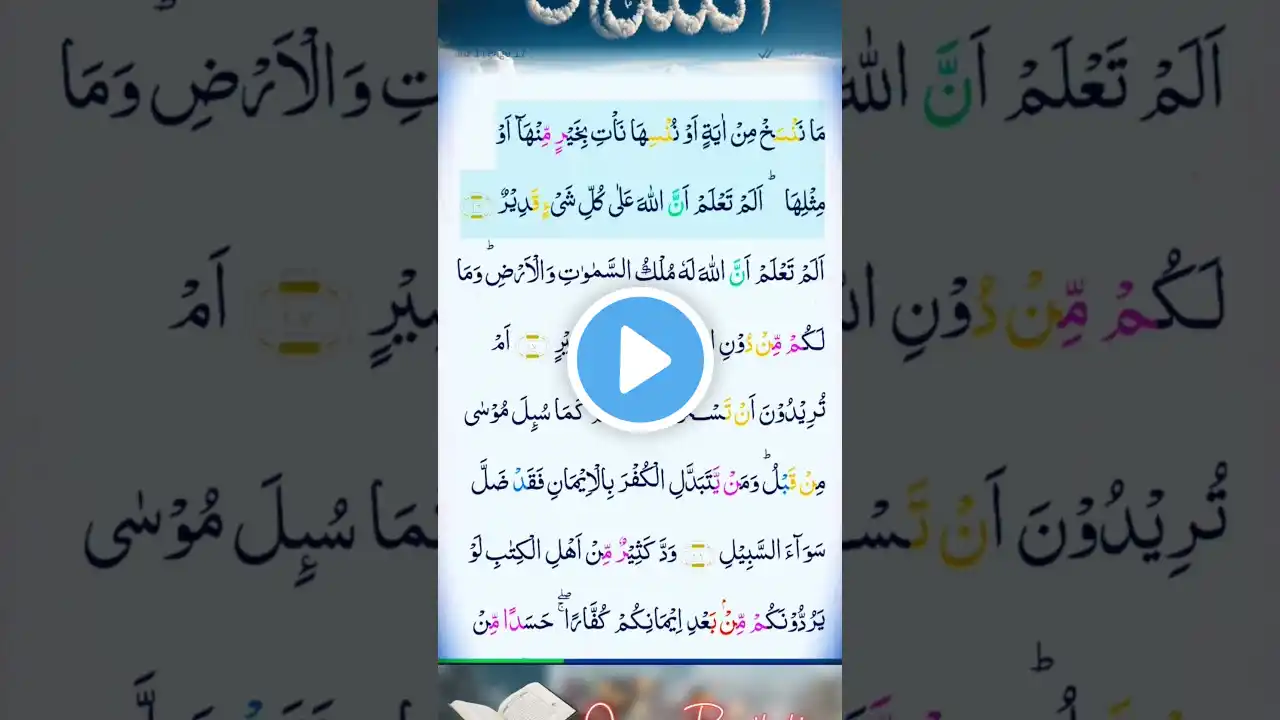 مَا نَنْسَخْ مِنْ اٰيَةٍ اَوْ نُنْسِهَا نَاْتِ بِخَيْرٍ مِّنْهَآ اَوْ
مِثْلِهَا ؕ اَلَمْ تَعْلَمْ اَنَّ اللّٰهَ عَلٰى كُلِّ شَىْءٍ قَدِيْرٌ
اَلَمْ تَعْلَمْ اَنَّ اللّٰهَ لَهٗ مُلْكُ السَّمٰوٰتِ وَالْاَرْضِ ؕ وَمَا
لَكُمْ مِّنْ دُوْنِ اَمْ
تُرِيْدُوْنَ اَنْ كَمَا سُىِٕلَ مُوْسٰى
مِنْ قَبْلُ ؕ وَمَنْ يَّتَبَدَّلِ الْكُفْرَ بِالْاِيْمَانِ فَقَدْ ضَلَّ
سَوَآءَ السَّبِيْلِ وَدَّ كَثِيْرٌ مِّنْ اَهْلِ الْكِتٰبِ لَوْ
يَرُدُّوْنَكُمْ مِّنْۢ بَعْدِ اِيْمَانِكُمْ كُفَّارًا ۖۚ حَسَدًا مِّنْ